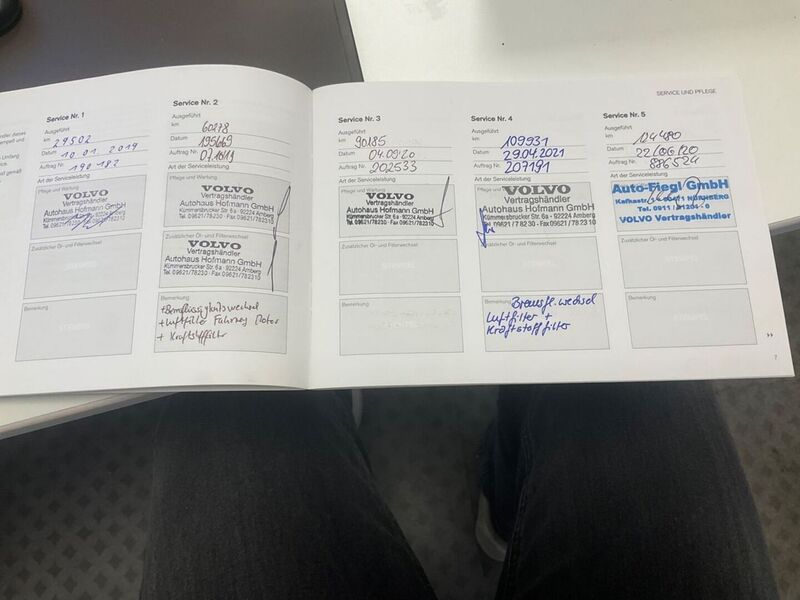 SERVICE UND PFLEGE
Service Nr. 1
Ausgeführt
km 29502
Datum 10.01.2019
Auftrag Nr. 190182
Art der Serviceleistung
Pflege und Wartung
VOLVO
Vertragshändler
Autohaus Hofmann GmbH
Zusätzlicher Öl- und Filterwechsel
STEMPEL
Bemerkung
STEMPEL
Service Nr. 2
Ausgeführt
km 60278
Datum 195669
Auftrag Nr.
Art der Serviceleistung
Pflege und Wartung
VOLVO
Vertragshändler
Autohaus Hofmann GmbH
Kümmersbrucker Str. 6a · 92224 Amberg
Tel. 09621/78230 · Fax 09621/782310
Zusätzlicher Öl- und Filterwechsel
VOLVO
Vertragshändler
Autohaus Hofmann GmbH
Kümmersbrucker Str. 6a · 92224 Amberg
Tel. 09621/78230 · Fax 09621/782310
Bemerkung
+ Kraftstofffilter
Service Nr. 3
Ausgeführt
km 90185
Datum 04.09.20
Auftrag Nr. 202533
Art der Serviceleistung
Pflege und Wartung
VOLVO
Vertragshändler
Autohaus Hofmann GmbH
Kümmersbrucker Str. 6a · 92224 Amberg
Zusätzlicher Öl- und Filterwechsel
STEMPEL
Bemerkung
Service Nr. 4
Ausgeführt
km 109931
Datum 29.04.2021
Auftrag Nr. 207191
Art der Serviceleistung
Pflege und Wartung
VOLVO
Vertragshändler
Autohaus Hofmann GmbH
Kümmersbrucker Str. 6a · 92224 Amberg
Zusätzlicher Öl- und Filterwechsel
STEMPEL
Bemerkung Bremsfl. wechsel
Luftfilter +
Kraftstofffilter
Service Nr. 5
Ausgeführt
km 124480
Datum
Auftrag Nr. 886524
Art der Serviceleistung
Auto-Fiegl GmbH
NÜRNBERG
VOLVO Vertragshändler
Zusätzlicher Öl- und Filterwechsel
STEMPEL
Bemerkung
STEMPEL
7